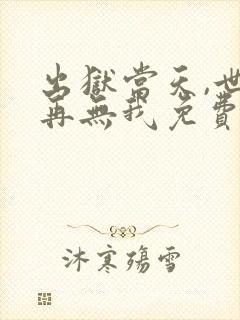 出獄當天,世
再無我免費
沐寒殤雪